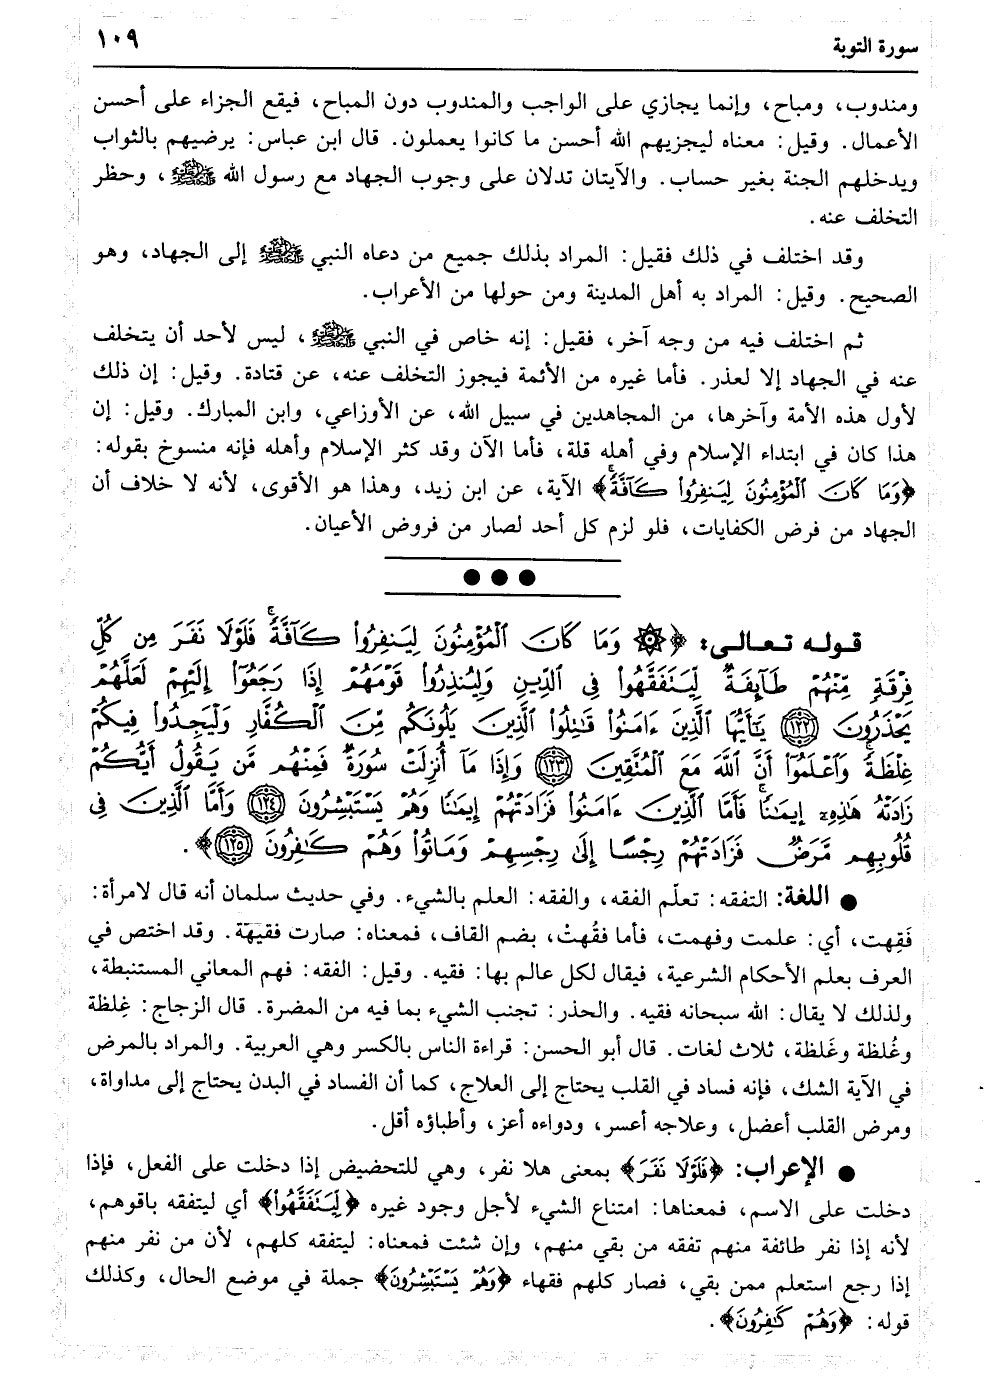 سورة التوبة
١٠٩
ومندوب، ومباح، وإنما يجازي على الواجب والمندوب دون المباح، فيقع الجزاء على أحسن
الأعمال. وقيل: معناه ليجزيهم الله أحسن ما كانوا يعملون. قال ابن عباس: يرضيهم بالثواب
ويدخلهم الجنة بغير حساب. والآيتان تدلان على وجوب الجهاد مع رسول الله ﷺ، وحظر
التخلف عنه.
وقد اختلف في ذلك فقيل: المراد بذلك جميع من دعاه النبي ﷺ إلى الجهاد، وهو
الصحيح. وقيل: المراد به أهل المدينة ومن حولها من الأعراب.
ثم اختلف فيه من وجه آخر، فقيل: إنه خاص في النبي ﷺ، ليس لأحد أن يتخلف
عنه في الجهاد إلا لعذر. فأما غيره من الأئمة فيجوز التخلف عنه، عن قتادة. وقيل: إن ذلك
لأول هذه الأمة وآخرها، من المجاهدين في سبيل الله، عن الأوزاعي، وابن المبارك. وقيل: إن
هذا كان في ابتداء الإسلام وفي أهله قلة، فأما الآن وقد كثر الإسلام وأهله فإنه منسوخ بقوله:
﴿وَمَا كَانَ الْمُؤْمِنُونَ لِيَنفِرُوا كَافَّةً﴾ الآية، عن ابن زيد، وهذا هو الأقوى، لأنه لا خلاف أن
الجهاد من فرض الكفايات، فلو لزم كل أحد لصار من فروض الأعيان.
قوله تعالى: ﴿۞ وَمَا كَانَ الْمُؤْمِنُونَ لِيَنفِرُوا كَآفَّةً ۚ فَلَوْلَا نَفَرَ مِن كُلِّ
فِرْقَةٍ مِّنْهُمْ طَآئِفَةٌ لِّيَتَفَقَّهُوا فِي الدِّينِ وَلِيُنذِرُوا قَوْمَهُمْ إِذَا رَجَعُوٓا إِلَيْهِمْ لَعَلَّهُمْ
يَحْذَرُونَ ١٢٢ يَٰٓأَيُّهَا الَّذِينَ ءَامَنُوا قَٰتِلُوا الَّذِينَ يَلُونَكُم مِّنَ الْكُفَّارِ وَلْيَجِدُوا فِيكُمْ
غِلْظَةً ۚ وَاعْلَمُوٓا أَنَّ اللَّهَ مَعَ الْمُتَّقِينَ ١٢٣ وَإِذَا مَآ أُنزِلَتْ سُورَةٌ فَمِنْهُم مَّن يَقُولُ أَيُّكُمْ
زَادَتْهُ هَٰذِهِۦٓ إِيمَٰنًا ۚ فَأَمَّا الَّذِينَ ءَامَنُوا فَزَادَتْهُمْ إِيمَٰنًا وَهُمْ يَسْتَبْشِرُونَ ١٢٤ وَأَمَّا الَّذِينَ فِي
قُلُوبِهِم مَّرَضٌ فَزَادَتْهُمْ رِجْسًا إِلَىٰ رِجْسِهِمْ وَمَاتُوا وَهُمْ كَٰفِرُونَ ١٢٥﴾.
● اللغة: التفقه: تعلّم الفقه، والفقه: العلم بالشيء. وفي حديث سلمان أنه قال لامرأة:
فَقِهت، أي: علمت وفهمت، فأما فقُهتْ، بضم القاف، فمعناه: صارت فقيهة. وقد اختص في
العرف بعلم الأحكام الشرعية، فيقال لكل عالم بها: فقيه. وقيل: الفقه: فهم المعاني المستنبطة،
ولذلك لا يقال: الله سبحانه فقيه. والحذر: تجنب الشيء بما فيه من المضرة. قال الزجاج: غِلظة
وغُلظة وغَلظة، ثلاث لغات. قال أبو الحسن: قراءة الناس بالكسر وهي العربية. والمراد بالمرض
في الآية الشك، فإنه فساد في القلب يحتاج إلى العلاج، كما أن الفساد في البدن يحتاج إلى مداواة،
ومرض القلب أعضل، وعلاجه أعسر، ودواءه أعز، وأطباؤه أقل.
● الإعراب: ﴿فَلَوْلَا نَفَرَ﴾ بمعنى هلا نفر، وهي للتحضيض إذا دخلت على الفعل، فإذا
دخلت على الاسم، فمعناها: امتناع الشيء لأجل وجود غيره ﴿لِّيَتَفَقَّهُوا﴾ أي ليتفقه باقوهم،
لأنه إذا نفر طائفة منهم تفقه من بقي منهم، وإن شئت فمعناه: ليتفقه كلهم، لأن من نفر منهم
إذا رجع استعلم ممن بقي، فصار كلهم فقهاء ﴿وَهُمْ يَسْتَبْشِرُونَ﴾ جملة في موضع الحال، وكذلك
قوله: ﴿وَهُمْ كَٰفِرُونَ﴾.